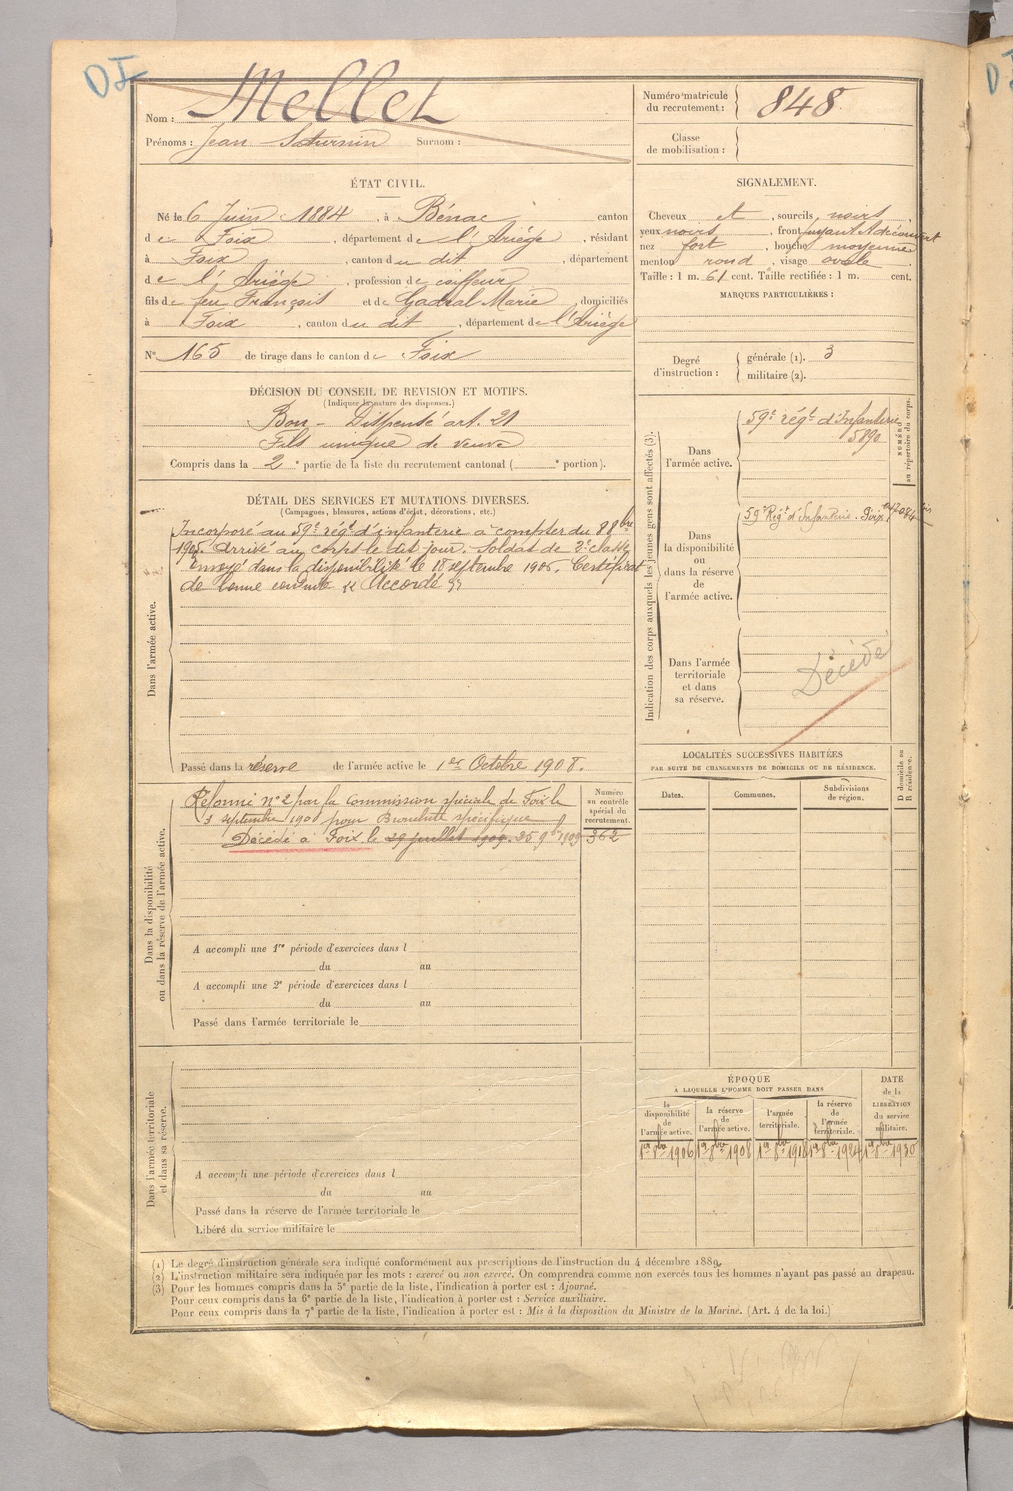 DI
Nom : Mellet
Prénoms : Jean Saturnin Surnom :
Numéro matricule
du recrutement : 848
Classe
de mobilisation :
ÉTAT CIVIL.
Né le 6 Juin 1884, à Bénac canton
de Foix, département de l'Ariège, résidant
à Foix, canton du dit, département
de l'Ariège, profession de coiffeur
fils de feu François et de Gadral Marie, domiciliés
à Foix, canton du dit, département de l'Ariège
N° 165 de tirage dans le canton de Foix
SIGNALEMENT.
Cheveux et, sourcils noirs,
yeux noirs, front fuyant & découvert
nez fort, bouche moyenne
menton rond, visage ovale
Taille : 1 m. 61 cent. Taille rectifiée : 1 m. cent.
MARQUES PARTICULIÈRES :
Degré
d'instruction :
générale (1). 3
militaire (2).
DÉCISION DU CONSEIL DE REVISION ET MOTIFS.
(Indiquer la nature des dispenses.)
Bon - Dispensé art. 21
Fils unique de veuve
Compris dans la 2e partie de la liste du recrutement cantonal ( e portion).
DÉTAIL DES SERVICES ET MUTATIONS DIVERSES.
(Campagnes, blessures, actions d'éclat, décorations, etc.)
Dans l'armée active.
Incorporé au 59e régt d'infanterie à compter du 8 8bre
1905. Arrivé au corps le dit jour. Soldat de 2e classe
Envoyé dans la disponibilité le 18 septembre 1906. Certificat
de bonne conduite « Accordé »
Passé dans la réserve de l'armée active le 1er Octobre 1908.
Indication des corps auxquels les jeunes gens sont affectés (3).
NUMÉRO
au répertoire du corps.
Dans
l'armée active.
59e régt d'Infanterie
5890
Dans
la disponibilité
ou
dans la réserve
de
l'armée active.
59e Régt d'Infanterie. Foix
Dans l'armée
territoriale
et dans
sa réserve.
Décédé
Dans la disponibilité
ou dans la réserve de l'armée active.
Réformé n°2 par la commission spéciale de Foix le
3 septembre 190 pour Bronchite spécifique
Décédé à Foix le 29 juillet 1909. 25 9bre 1909
Numéro
au contrôle
spécial du
recrutement.
362
A accompli une 1re période d'exercices dans l
du au
A accompli une 2e période d'exercices dans l
du au
Passé dans l'armée territoriale le
LOCALITÉS SUCCESSIVES HABITÉES
PAR SUITE DE CHANGEMENTS DE DOMICILE OU DE RÉSIDENCE.
D domicile ou
R résidence.
Dates.
Communes.
Subdivisions
de région.
Dans l'armée territoriale
et dans sa réserve.
A accompli une période d'exercices dans l
du au
Passé dans la réserve de l'armée territoriale le
Libéré du service militaire le
ÉPOQUE
À LAQUELLE L'HOMME DOIT PASSER DANS
la
disponibilité
de
l'armée active.
la réserve
de
l'armée active.
l'armée
territoriale.
la réserve
de
l'armée
territoriale.
DATE
de la
LIBÉRATION
du service
militaire.
1er 8bre 1906 1er 8bre 1908 1er 8bre 1918 1er 8bre 1924 1er 8bre 1930
(1) Le degré d'instruction générale sera indiqué conformément aux prescriptions de l'instruction du 4 décembre 1889.
(2) L'instruction militaire sera indiquée par les mots : exercé ou non exercé. On comprendra comme non exercés tous les hommes n'ayant pas passé au drapeau.
(3) Pour les hommes compris dans la 5e partie de la liste, l'indication à porter est : Ajourné.
Pour ceux compris dans la 6e partie de la liste, l'indication à porter est : Service auxiliaire.
Pour ceux compris dans la 7e partie de la liste, l'indication à porter est : Mis à la disposition du Ministre de la Marine. (Art. 4 de la loi.)